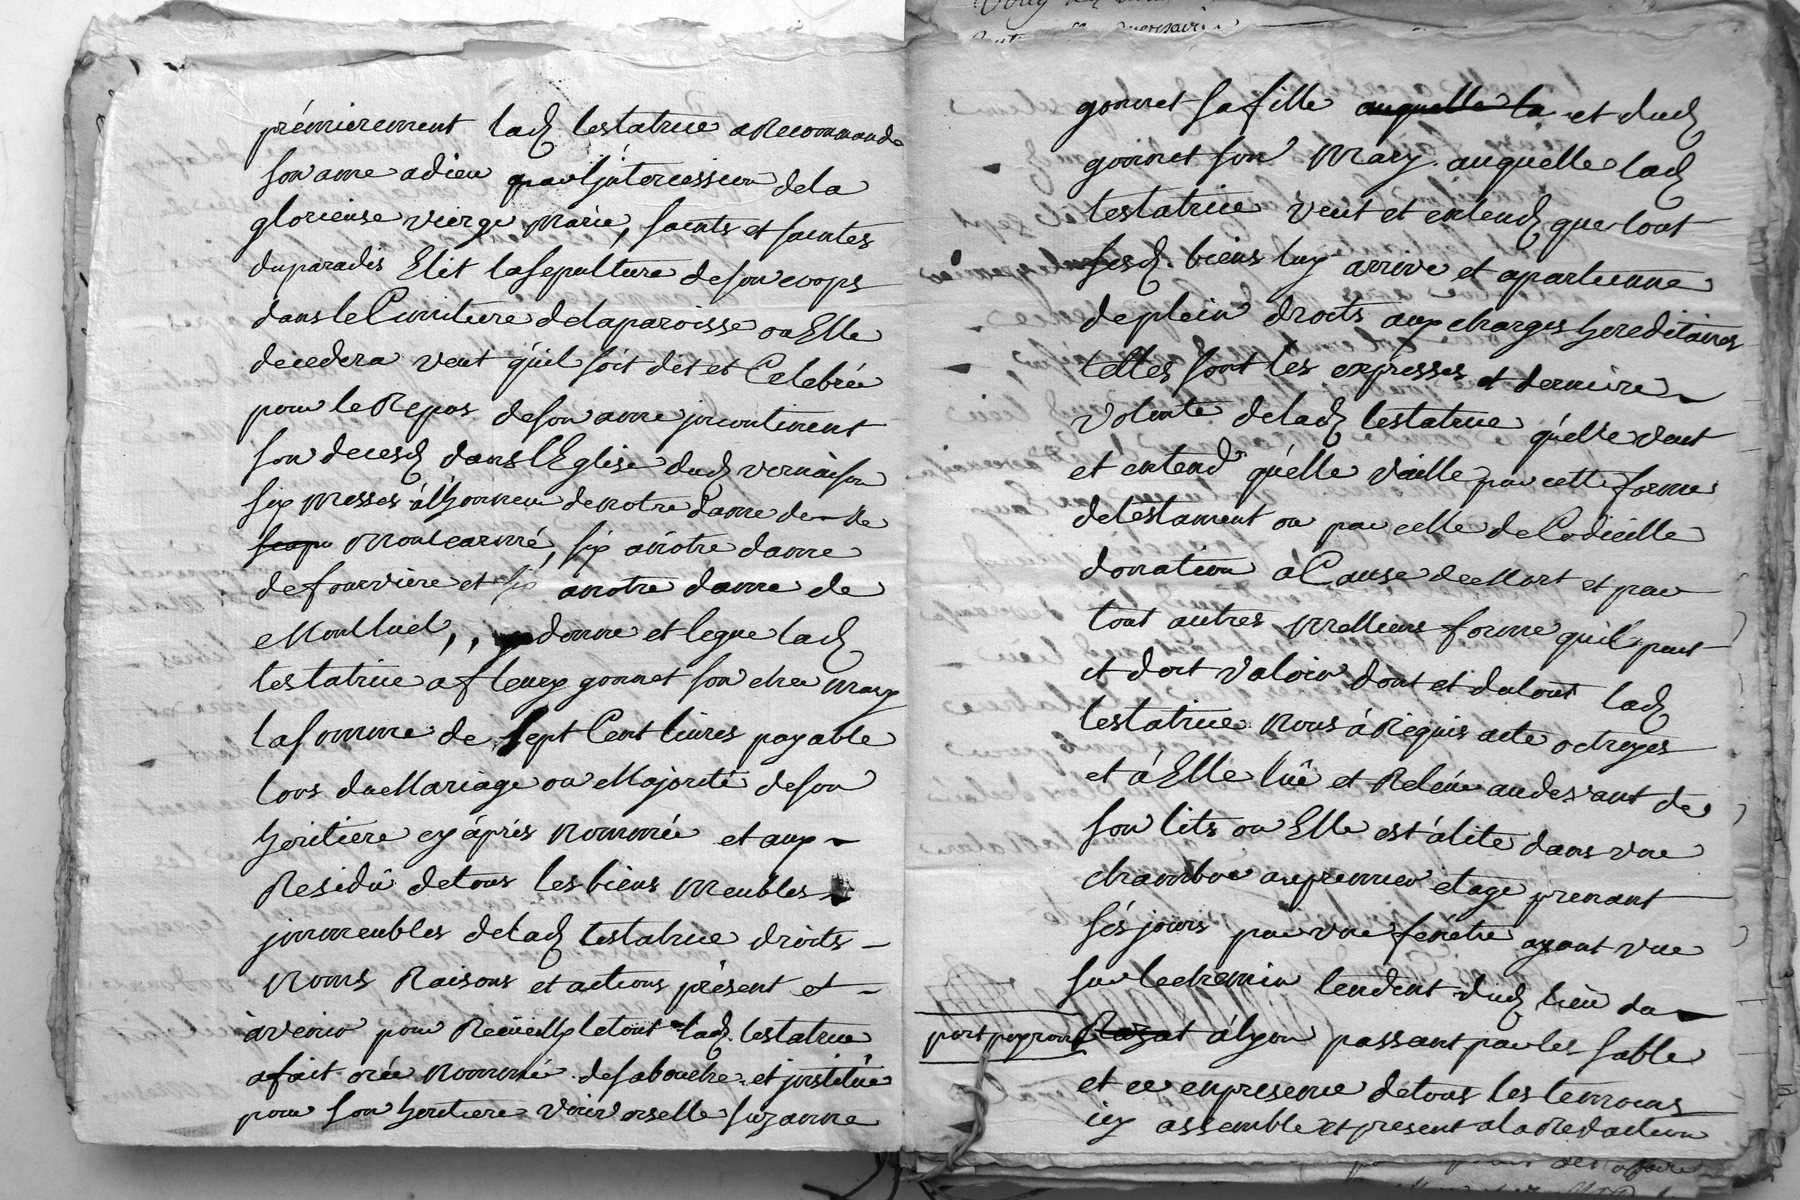 prémierement lad. testatrice a Recommandé
son ame a dieu par l'jntercession de la
glorieuse vierge Marie, saints et saintes
du parades Elit la sepulture de son corps
dans le Cimitiere de la paroisse ou Elle
decedera veut qu'il soit dit et Celebrée
pour le Repos de son ame jncontinent
son decesd. dans l'Eglise dud. vernaison
six messes à l'honneur de notre Dame de
montcarmé, six a nôtre dame
de fourviere et six a notre dame de
Montluel, donne et legue lad.
testatrice a fleury gonnet son cher mary
la somme de sept Cent livres payable
lors du Mariage ou Majorité de son
heritiere cy après nommée et aux
Residû de tous les biens meubles
jmmeubles de lad. testatrice droits
noms Raisons et actions présent et
àvenir pour Recüeillx le tout lad. testatrice
a fait crée nommé de sa bouche et jnstitüe
pour son heritiere suzanne
gonnet sa fille auquelle la et dud.
gonnet son mary auquelle lad.
testatrice veut et entend que tout
sesd. biens luy arrive et apartienne
de plein droits aux charges hereditaires
telles sont les expresses et derniere
volonté de lad. testatrice qu'elle veut
et entend qu'elle vaille par cette forme
de testament ou par celle de Codicille
donation à Cause de Mort et par
tout autres mellieure forme qu'il peut
et doit valoir dont et du tout lad.
testatrice nous à Requis acte octroyes
et à Elle lûe et Relüe au devant de
son lits ou Elle est àlité dans une
chambre au premier etage prenant
sés jours par une fenétre ayant vue
sur le chemin tendent dud. lieu du
port peyron Razat à lyon passant par les sable
et ce en presence de tous les temoins
icy assemble et present a la Redaction